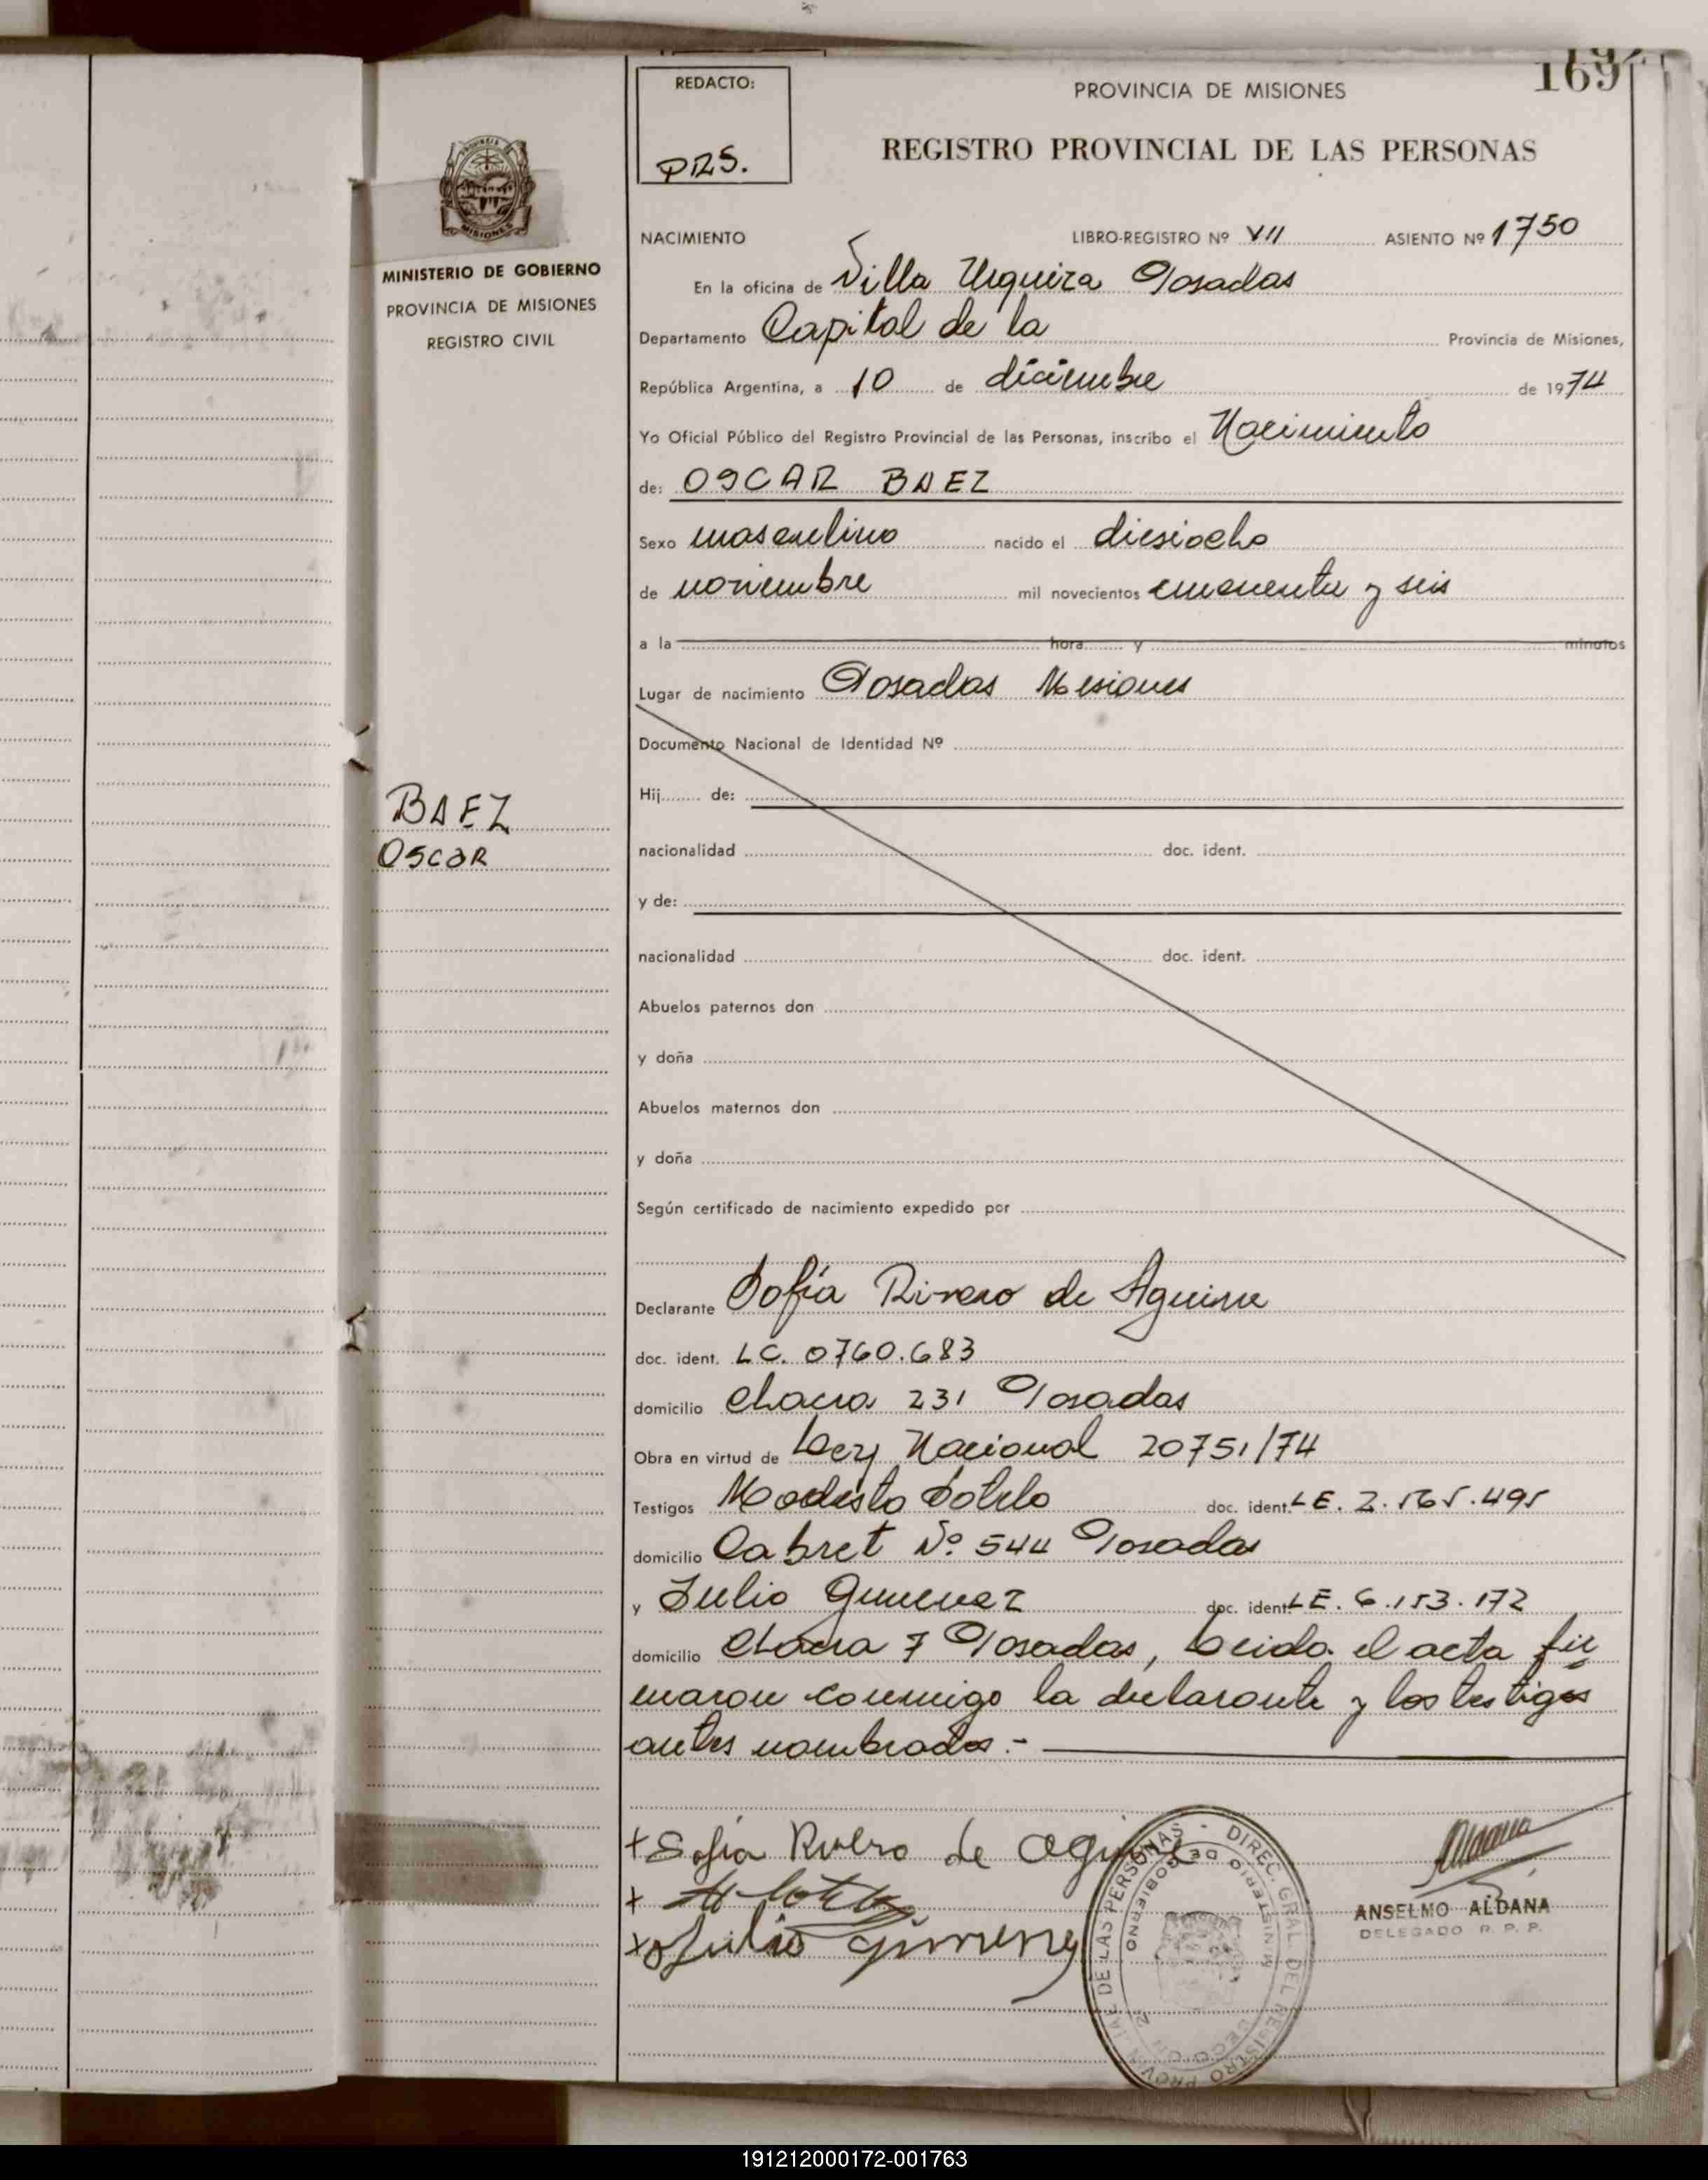 192
169
REDACTO:
PRS.
PROVINCIA DE MISIONES
REGISTRO PROVINCIAL DE LAS PERSONAS
MINISTERIO DE GOBIERNO
PROVINCIA DE MISIONES
REGISTRO CIVIL
BAEZ
OSCAR
NACIMIENTO LIBRO-REGISTRO Nº VII ASIENTO Nº 1750
En la oficina de Villa Urquiza Posadas
Departamento Capital de la Provincia de Misiones,
República Argentina, a 10 de diciembre de 1974
Yo Oficial Público del Registro Provincial de las Personas, inscribo el Nacimiento
de: OSCAR BAEZ
Sexo masculino nacido el diesiocho
de noviembre mil novecientos cincuenta y seis
a la hora y minutos
Lugar de nacimiento Posadas Misiones
Documento Nacional de Identidad Nº
Hij de:
nacionalidad doc. ident.
y de:
nacionalidad doc. ident.
Abuelos paternos don
y doña
Abuelos maternos don
y doña
Según certificado de nacimiento expedido por
Declarante Sofía Rivero de Aguirre
doc. ident. LC. 0760.683
domicilio Chacra 231 Posadas
Obra en virtud de Ley Nacional 20751/74
Testigos Modesto Sotelo doc. ident. LE. 2.565.495
domicilio Cabret Nº 544 Posadas
y Julio Gimenez doc. ident. LE. 6.153.172
domicilio Chacra 7 Posadas, Leida el acta fir
maron conmigo la declarante y los testigos
antes nombrados.-
+ Sofia Rivero de Aguirre
+
x Julio Gimenez
DIREC. GRAL. DEL REGISTRO PROVINCIAL DE LAS PERSONAS -
MINISTERIO DE GOBIERNO
ANSELMO ALDANA
DELEGADO R. P. P.
191212000172-001763